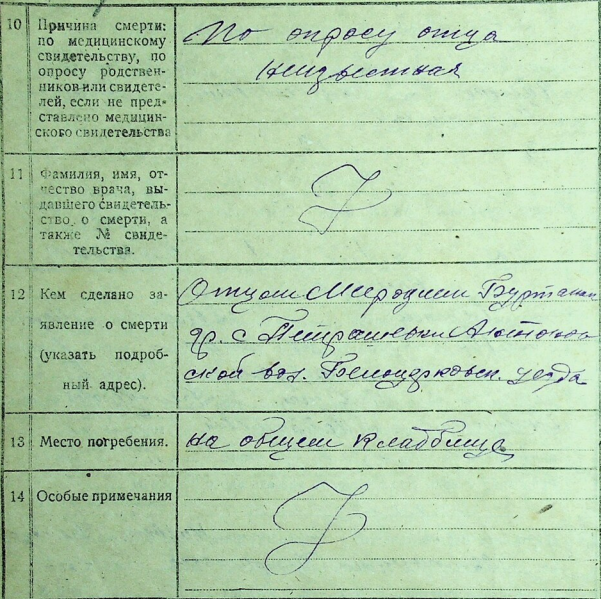 10 Причина смерти:
по медицинскому
свидетельству, по
опросу родствен-
ников или свидете-
лей, если не пред-
ставлено медицин-
ского свидетельства
По опросу отца
неизвестная
11 Фамилия, имя, от-
чество врача, вы-
давшего свидетель-
ство о смерти, а
также № свиде-
тельства.
12 Кем сделано за-
явление о смерти
(указать подроб-
ный адрес).
Отцом
гр. с
ской вол. Белоцерковск. уезда
13 Место погребения.
на общем кладбище
14 Особые примечания